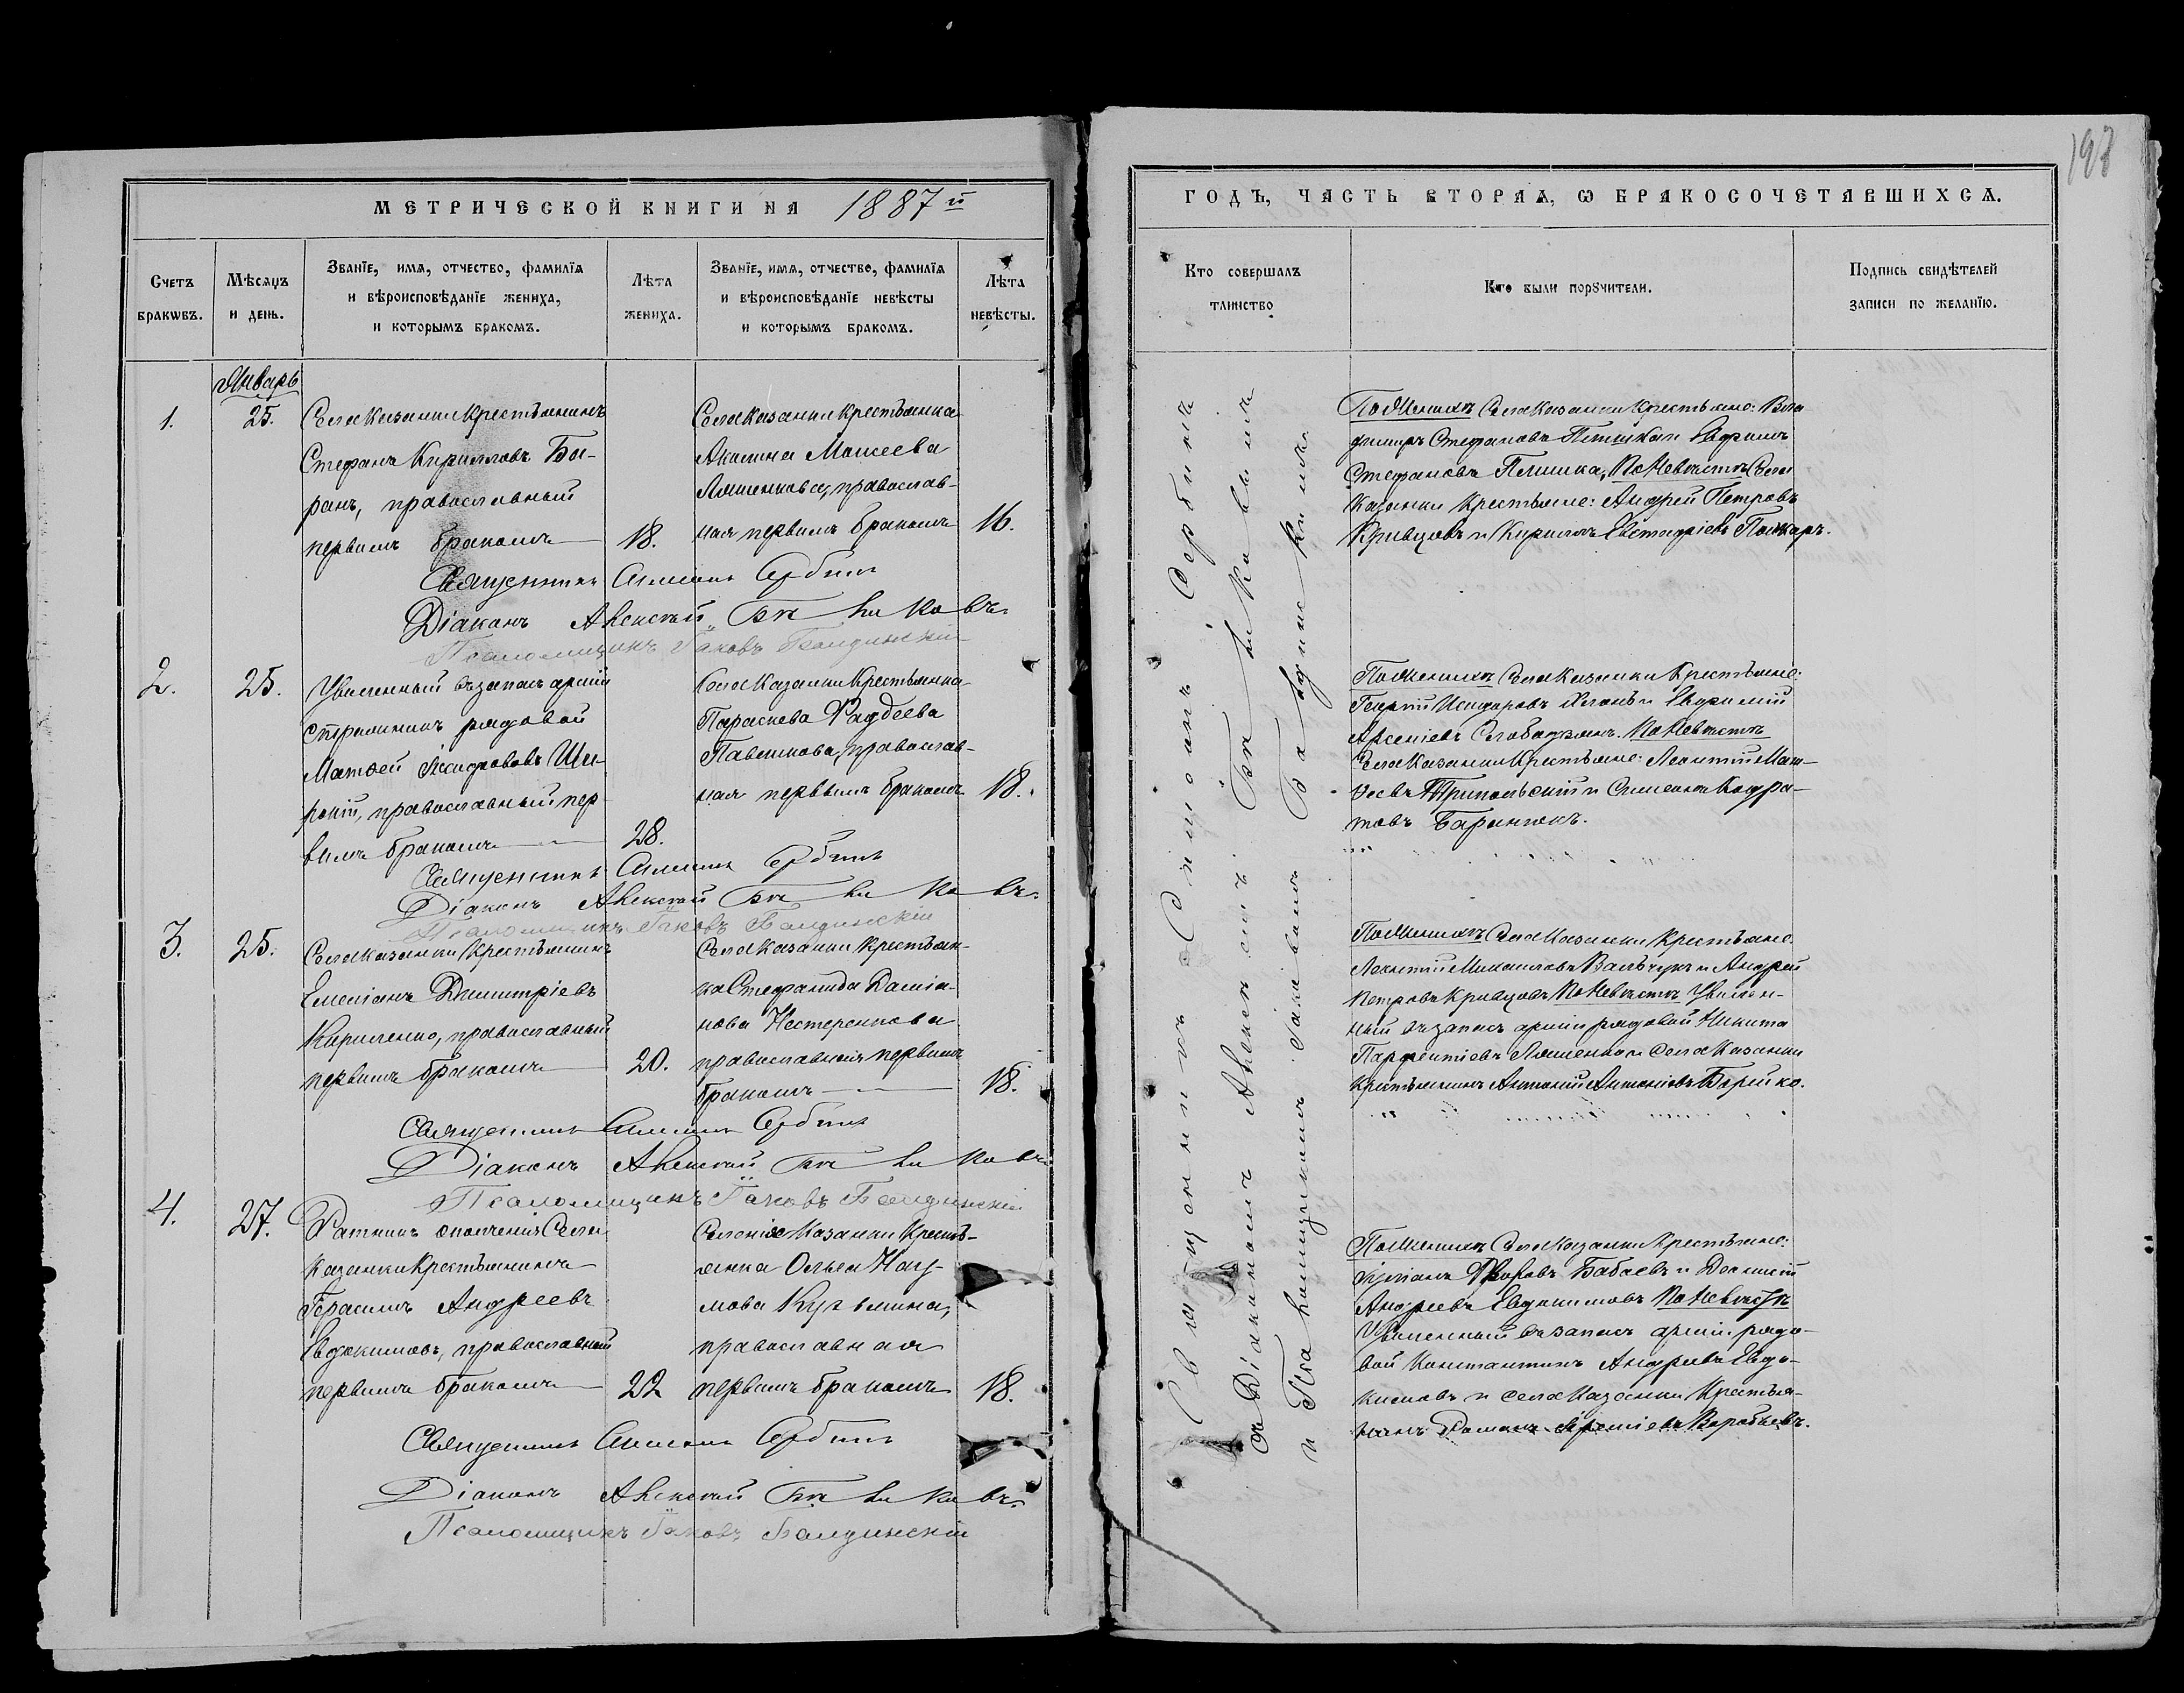 МЕТРИЧЕСКОЙ КНИГИ НА 1887й
Счетъ браковъ.
Мѣсяцъ и день.
Званїе, имя, отчество, фамилїя и вѣроисповѣданїе жениха, и которымъ бракомъ.
Лѣта жениха.
Званїе, имя, отчество, фамилїя и вѣроисповѣданїе невѣсты и которымъ бракомъ.
Лѣта невѣсты.
Январь
1.
25.
Села Казанки крестьянинъ
Стефанъ Кирилловъ Ба-
ранъ, православный
первымъ бракомъ
18.
Села Казанки крестьянка
Акилина Моисеева
Ляшенкова, православ-
ная первымъ бракомъ
16.
Священникъ Симеонъ Сербинъ
Діаконъ Алексѣй
Псаломщикъ Іаковъ
2.
25.
Уволенный въ запасъ арміи
стрѣльникъ рядовой
Матѳей Исидоровъ Ши-
рокій, православный пер-
вымъ бракомъ
28.
Села Казанки крестьянка
Параскева Фаддеева
Павленкова, православ-
ная первымъ бракомъ
18.
Священникъ Симеонъ Сербинъ
Діаконъ Алексѣй
Псаломщикъ Іаковъ
3.
25.
Села Казанки крестьянинъ
Емеліанъ Димитріевъ
Кириленко, православный
первымъ бракомъ
20.
Села Казанки крестьян-
ка Стефанида Даміа-
нова Нестеренкова
православная первымъ
бракомъ
18.
Священникъ Симеонъ Сербинъ
Діаконъ Алексѣй
Псаломщикъ Іаковъ
4.
27.
Ратникъ ополченія Села
Казанки крестьянинъ
Герасимъ Андреевъ
Евдокимовъ, православный
первымъ бракомъ
22
Селенія Казанки кресть-
янка Ольга Нау-
мова Кузьмина,
православная
первымъ бракомъ
18.
Священникъ Симеонъ Сербинъ
Діаконъ Алексѣй
Псаломщикъ Іаковъ
198
ГОДЪ, ЧАСТЬ ВТОРАЯ, Ѡ БРАКОСОЧЕТАВШИХСЯ.
Кто совершалъ таинство
Кто были порꙋчители.
Подпись свидѣтелей записи по желанїю.
Священникъ Симеонъ Сербинъ
съ Діакономъ Алексѣемъ
и Псаломщикомъ Іаковомъ
По женихѣ Села Казанки крестьяне: Вла-
димиръ Стефановъ и Ефремъ
Стефановъ По невѣстѣ Села
Казанки крестьяне: Андрей Петровъ
Кривцовъ и Кириллъ Евстафіевъ
По женихѣ Села Казанки крестьяне:
Георгій Исидоровъ и Евфимій
Арсеніевъ По невѣстѣ
Села Казанки крестьяне: Леонтій Мат-
ѳеевъ Трипольскій и Симеонъ Кодра-
товъ Баранюкъ.
По женихѣ Села Казанки крестьяне:
Леонтій Михаиловъ Васильчукъ и Андрей
Петровъ Кривцовъ По невѣстѣ Уволен-
ный въ запасъ арміи рядовой Никита
Парфентіевъ Ляшенко и села Казанки
крестьянинъ Антоній Антоніевъ Бурийко.
По женихѣ Села Казанки крестьяне:
Бабаевъ и
Андреевъ Евдокимовъ По невѣстѣ
Уволенный въ запасъ арміи рядо-
вой Константинъ Андреевъ Евдо-
кимовъ и села Казанки крестья-
нинъ Романъ Воробьевъ.